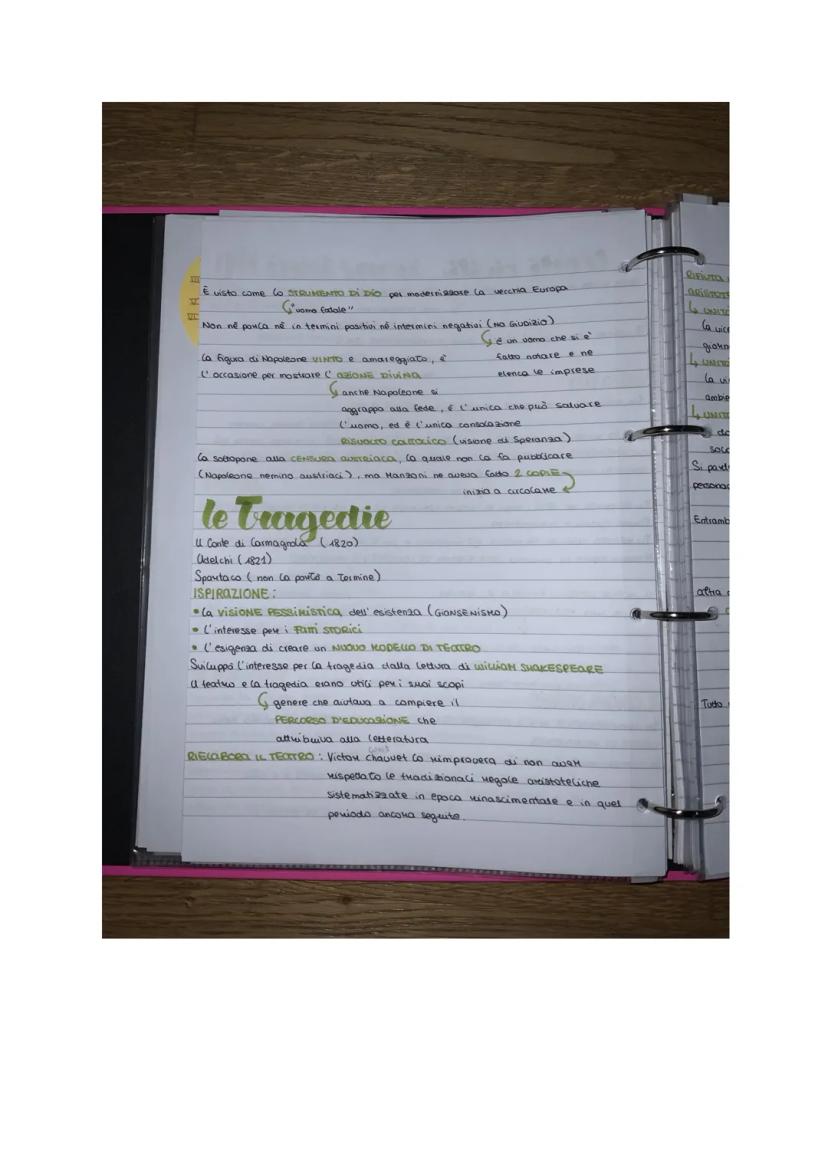 È visto come lo STRUMENTO DI DIO per modernizzare la vecchia Europa
"uomo fatale"
Non né parla né in termini positivi né intermini negativi (NO GIUDIZIO)
è un uomo che si è
fatto notare e ne
elenca le imprese
la figura di Napoleone VINTO e amareggiato, è
l'occasione per mostrare l'AZIONE DIVINA
anche Napoleone si
aggrappa alla fede, è l'unica che può salvare
l'uomo, ed è l'unica consolazione
RISVOLTO CATTOLICO (visione di Speranza)
la sottopone alla CENSURA AUSTRIACA, la quale non la fa pubblicare
(Napoleone nemino austriaci), ma Manzoni ne aveva fatto 2 COPIE
inizia a circolare
le Tragedie
Il Conte di Carmagnola (1820)
Adelchi (1821)
Spartaco (non la portò a Termine)
ISPIRAZIONE:
• la VISIONE PESSIMISTICA dell'esistenza (GIANSENISMO)
• l'interesse per i FATTI STORICI
• l'esigenza di creare un NUOVO MODELLO DI TEATRO
Sviluppò l'interesse per la tragedia dalla lettura di WILLIAM SHAKESPEARE
Il teatro e la tragedia erano utili per i suoi scopi
genere che aiutava a compiere il
PERCORSO D'EDUCAZIONE che
attribuiva alla letteratura
RIELABORA IL TEATRO: Victor Chauvet lo rimprovera di non aver
rispettato le tradizionali regole aristoteliche
sistematizzate in epoca rinascimentale e in quel
periodo ancora seguite.
RIFIUTA
la
Si
Entramb
altra
Tutto